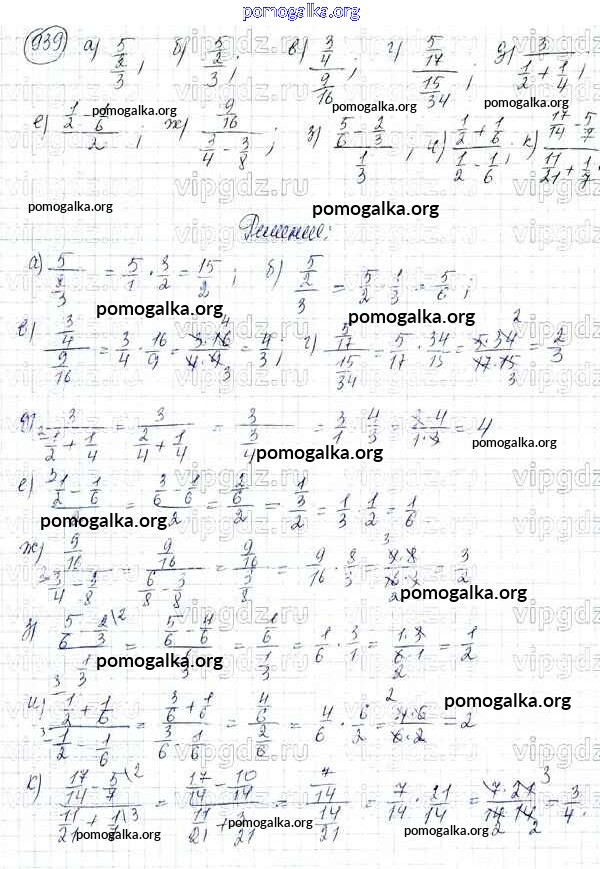 pomogalka.org
939 а) 5/(2/3); б) (5/2)/3; в) (3/4)/(9/16); г) (5/17)/(15/34); д) 3/(1/2 + 1/4);
е) (1/2 - 1/6)/2; ж) (9/16)/(3/4 - 3/8); з) (5/6 - 2/3)/(1/3); и) (1/2 + 1/6)/(1/2 - 1/6); к) (17/14 - 5/7)/(11/21 + 1/7)
pomogalka.org pomogalka.org pomogalka.org
Решение:
а) 5/(2/3) = 5/1 · 3/2 = 15/2; б) (5/2)/3 = 5/2 · 1/3 = 5/6;
pomogalka.org pomogalka.org
в) (3/4)/(9/16) = 3/4 · 16/9 = 3·16/4·9 = 4/3; г) (5/17)/(15/34) = 5/17 · 34/15 = 5·34/17·15 = 2/3
д) 3/(1/2 + 1/4) = 3/(2/4 + 1/4) = 3/(3/4) = 3/1 · 4/3 = 3·4/1·3 = 4
pomogalka.org pomogalka.org
е) (1/2 - 1/6)/2 = (3/6 - 1/6)/2 = (2/6)/2 = (1/3)/2 = 1/3 · 1/2 = 1/6.
pomogalka.org
ж) (9/16)/(3/4 - 3/8) = (9/16)/(6/8 - 3/8) = (9/16)/(3/8) = 9/16 · 8/3 = 9·8/16·3 = 3/2
pomogalka.org
з) (5/6 - 2/3)/(1/3) = (5/6 - 4/6)/(1/3) = (1/6)/(1/3) = 1/6 · 3/1 = 1·3/6·1 = 1/2
pomogalka.org
и) (1/2 + 1/6)/(1/2 - 1/6) = (3/6 + 1/6)/(3/6 - 1/6) = (4/6)/(2/6) = 4/6 · 6/2 = 4·6/6·2 = 2
pomogalka.org
к) (17/14 - 5/7)/(11/21 + 1/7) = (17/14 - 10/14)/(11/21 + 3/21) = (7/14)/(14/21) = 7/14 · 21/14 = 7·21/14·14 = 3/4.
pomogalka.org pomogalka.org